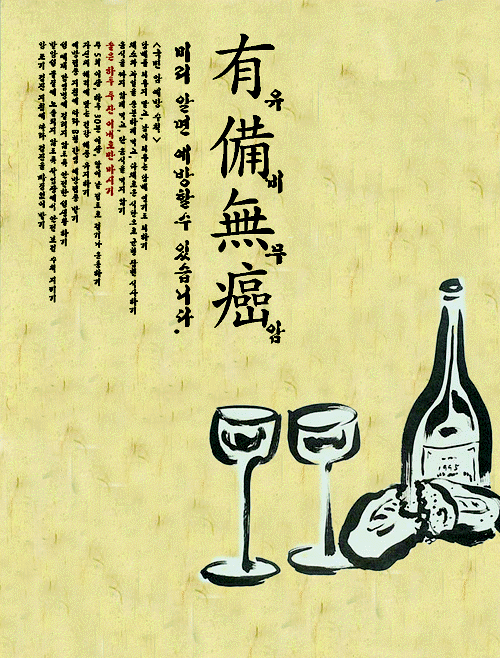 有備無癌
유비무암
미리 알면 예방할 수 있습니다.
<국민 암 예방 수칙>
담배를 피우지 말고, 남이 피우는 담배 연기도 피하기
채소와 과일을 충분하게 먹고, 다채로운 식단으로 균형 잡힌 식사하기
음식을 짜지 않게 먹고, 탄 음식을 먹지 않기
술은 하루 두 잔 이내로만 마시기
주 5회 이상, 하루 30분 이상, 땀이 날 정도로 걷거나 운동하기
자신의 체격에 맞는 건강 체중 유지하기
예방접종 지침에 따라 B형 간염 예방접종 받기
성 매개 감염병에 걸리지 않도록 안전한 성생활 하기
발암성 물질에 노출되지 않도록 작업장에서 안전 보건 수칙 지키기
암 조기 검진 지침에 따라 검진을 빠짐없이 받기
1995